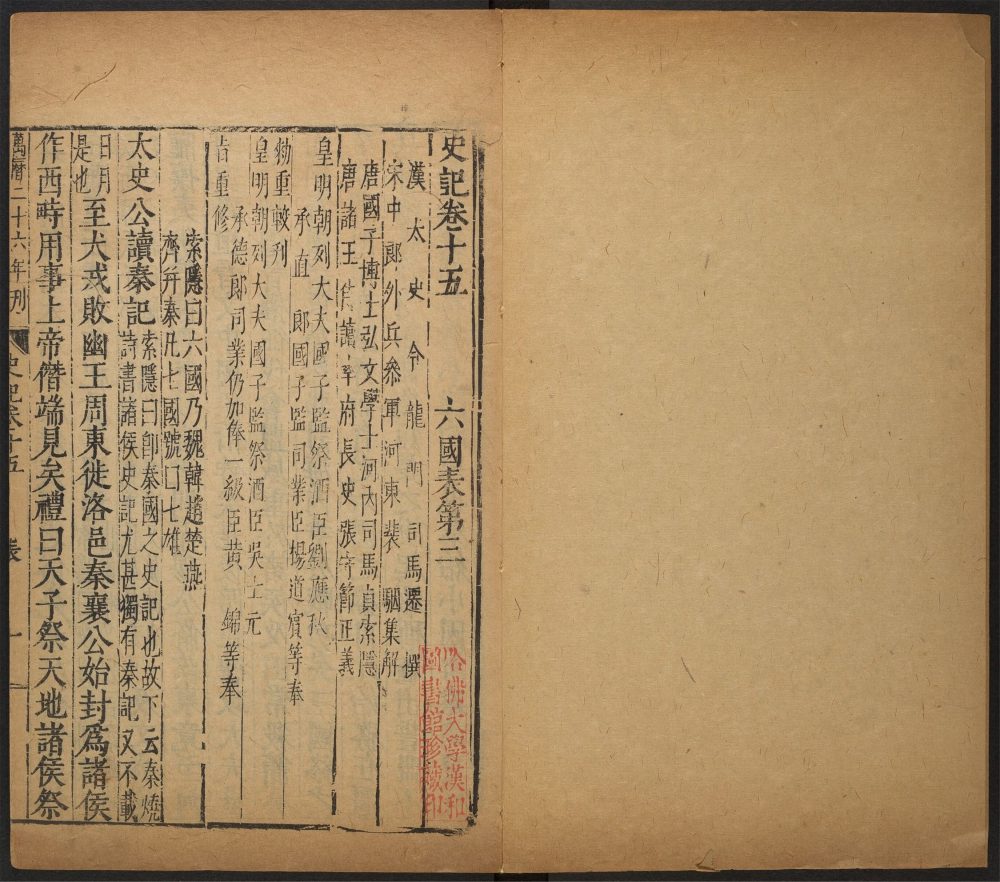 史記卷十五 六國表第三
漢太史令龍門司馬遷撰
宋中郎外兵參軍河東裴駰集解
唐國子博士弘文學士河內司馬貞索隱
唐諸王侍讀率府長史張守節正義
皇明朝列大夫國子監祭酒臣劉應秋
承直郎國子監司業臣楊道賓等奉
勑重較刋
皇明朝列大夫國子監祭酒臣吳士元
承德郎司業仍加俸一級臣黃錦等奉
旨重修
索隱曰六國乃魏韓趙楚燕
齊幷秦凡七國號曰七雄
太史公讀秦記
索隱曰卽秦國之史記也故下云秦燒
詩書諸侯史記尤甚獨有秦記又不載
日月
是也
至犬戎敗幽王周東徙洛邑秦襄公始封爲諸侯
作西畤用事上帝僭端見矣禮曰天子祭天地諸侯祭
萬曆二十六年刋 史記卷十五 表 一
哈佛大學漢和
圖書館珍藏印